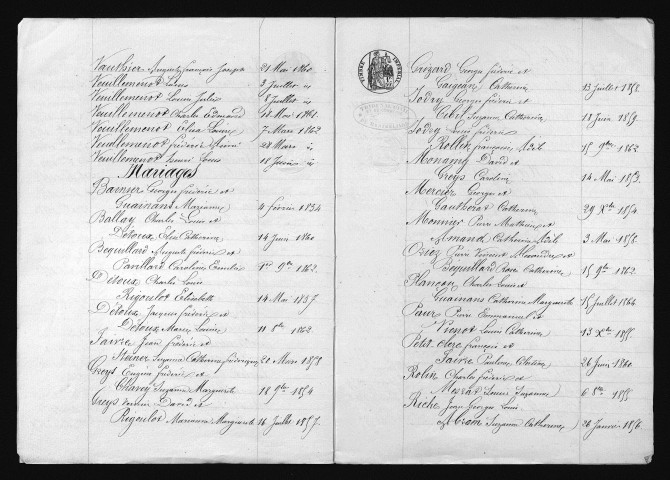 Vauthier Auguste François Joseph 21 Mai 1860
Veuillemenot Louis 3 Juillet id
Veuillemenot Louise Julie 8 Juillet id
Veuillemenot Charles Edouard 18 Nov 1861
Veuillemenot Elisa Louise 7 Mars 1862
Veuillemenot Frédéric 28 Mars id
Veuillemenot Louis id
Mariages
Bainier Georges Frédéric et
Guainans Marianne 4 février 1854
Ballay Charles Louis et
Détoux Elise Catherine 14 Juin 1860
Bequillard Auguste Frédéric et
Panillard Caroline Emélie 1er 9bre 1862
Détoux Charles Louis
Rigoulot Elisabeth 14 Mai 1857
Détoux Jacques Frédéric et
Détoux Marie Louise 11 8bre 1862
Faivre Jean Frédéric et
Steiner Suzanne Catherine Frédérique 20 Mars 1858
Greys Eugène Frédéric et
Charey Suzanne Marguerite 18 9bre 1854
Greys David et
Rigoulot Marianne Marguerite 16 Juillet 1857
TIMBRE IMPERIAL
Grizard Georges Frédéric et
Catherine 13 Juillet 1858
Jodry Georges Frédéric et
Suzanne Catherine 11 Juin 1859
Jodry Louis Frédéric
Rollet Françoise 15 9bre 1862
Monamy David et
Greys Caroline 14 Mai 1853
Mercier Georges et
Gautherat Catherine 29 Xbre 1854
Monnier Pierre Mathieu et
Armand Catherine 3 Mai 1858
Pierre Vincent Alexandre et
Bequillard Rose Catherine 15 9bre 1862
Plançon Charles Louis et
Guainans Catherine Marguerite 15 Juillet 1864
Paur Pierre Emmanuel et
Vienot Louise Catherine 13 Xbre 1855
Petit clerc François et
Faivre Pauline 26 Juin 1860
Rolin Charles Frédéric et
Louise Suzanne 6 8bre 1855
Riche Jean Georges Louis
Abram Suzanne Catherine 26 Janvier 1856